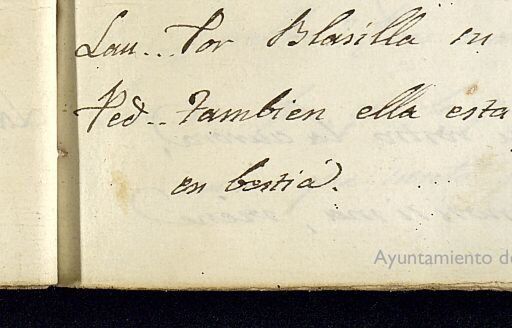 Lau.. Por Blasilla en
Ped.. tambien ella esta
en bestia.
Ayuntamiento de